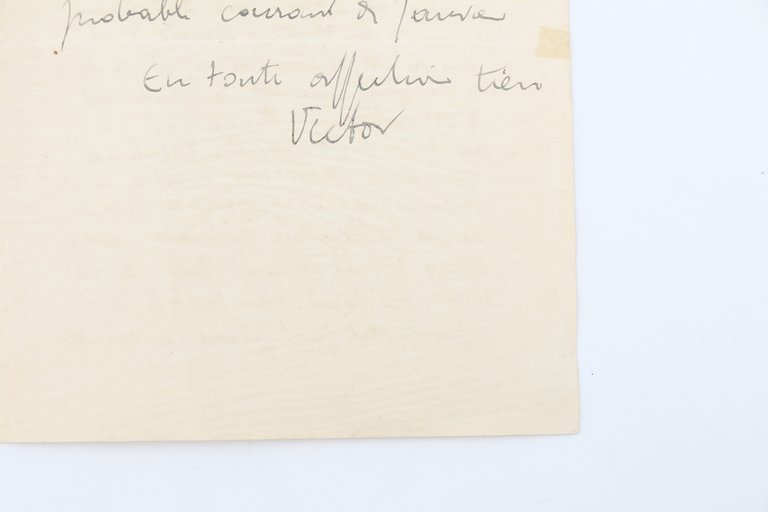 probable courant de Janvier
En toute affection tien
Victor